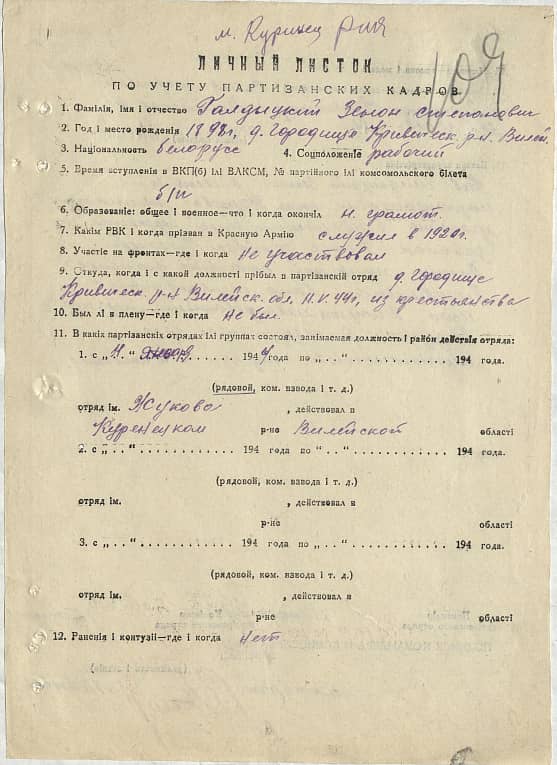 м. Куринец
109
ЛИЧНЫЙ ЛИСТОК
ПО УЧЕТУ ПАРТИЗАНСКИХ КАДРОВ
1. Фамілія, імя і отчество Галдыцкий Зенон степанович
2. Год і место рождения 1898г, д. Городище Кривическ. р-н Вилей.
3. Національность белорусс 4. Соцположение рабочий
5. Время вступления в ВКП(б) ілі ВЛКСМ, № партийного ілі комсомольского білета
б/п
6. Образование: общее і военное—что і когда окончіл н. грамот.
7. Какім РВК і когда прізван в Красную Армію служил в 1920г.
8. Участіе на фронтах—где і когда Не участвовал
9. Откуда, когда і с какой должності прібыл в партізанскій отряд д. Городище
Кривическ. р-н Вилейск. обл. 11.V.44г, из крестьянства
10. Был лі в плену—где і когда не был.
11. В какіх партізанскіх отрядах ілі группах состоял, занімаемая должность і район действія отряда:
1. с „ 11. “ . . . . . . 1944 года по „ . . “ . . . . . . . . . . . . 194 года.
(рядовой, ком. взвода і т. д.)
отряд ім. Жукова , действовал в
Куренецком р-не Вилейской області
2. с „ . . “ . . . . . . . . . . . . 194 года по “ . . “ . . . . . . . . . . . . 194 года.
(рядовой, ком. взвода і т. д.)
отряд ім. , действовал в
р-не області
3. с „ . . “ . . . . . . . . . . . . 194 года по „ . . “ . . . . . . . . . . . . 194 года.
(рядовой, ком. взвода і т. д.)
отряд ім. , действовал в
р-не області
12. Ранения і контузіі—где і когда нет